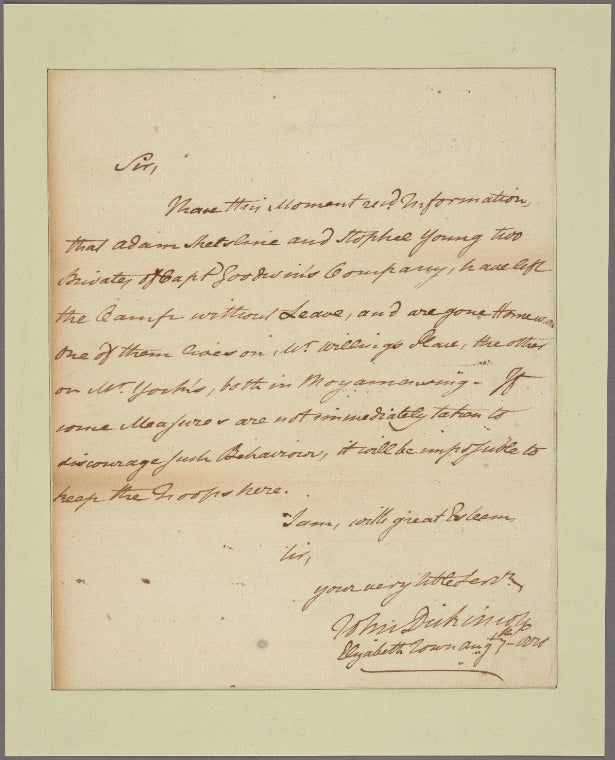 Sir,
I have this Moment recd Information,
that Adam Shetsline and Stophel Young two
Privates of Capt Goodwin's Company, have left
the Camp without Leave, and are gone Homeward
One of them lives on Mr Willing's Place, the other
on Mr. York's, both in Moyamensing. If
some Measures are not immediately taken to
discourage such Behaviour, it will be impossible to
keep the Troops here.
I am, with great Esteem,
Sir,
your very hble Servt,
John Dickinson
Elizabeth Town Augt 7th